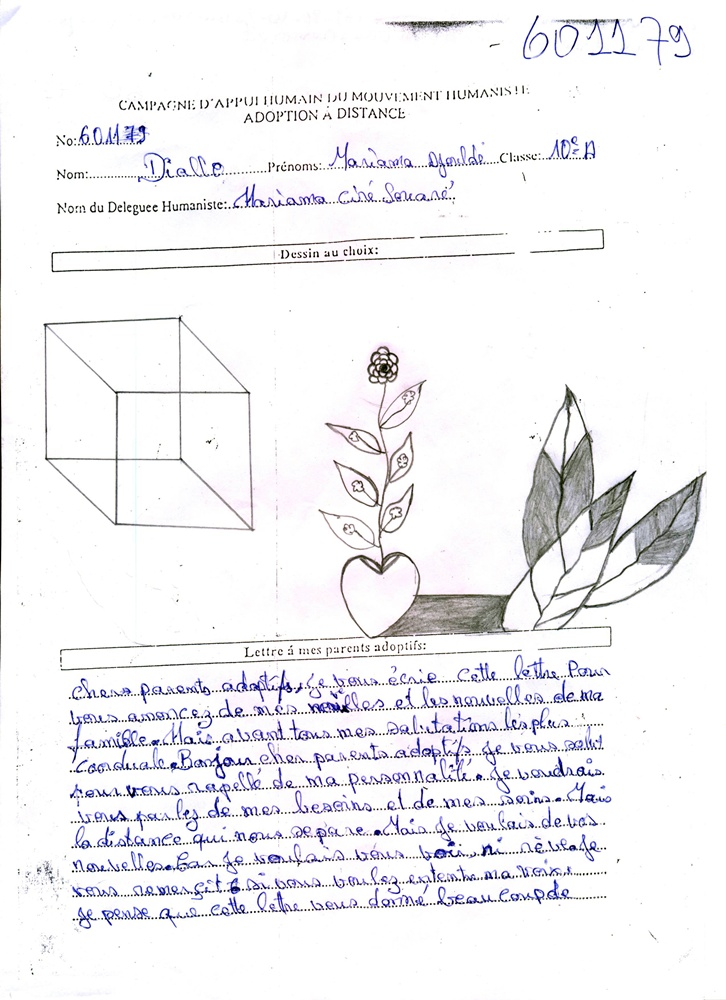 - 601179
CAMPAGNE D'APPUI HUMAIN DU MOUVEMENT HUMANISTE
ADOPTION À DISTANCE
No: 601179
Nom: Diallo Prénoms: Mariama Djouldé Classe: 10e A
Nom du Deleguee Humaniste: Mariama Ciré Souaré
Dessin au choix:
Lettre á mes parents adoptifs:
chers parents adoptifs, je vous écrie cette lettre Pour
vous anoncez de mes nouvelles et les nouvelles de ma
famille. Mais avant tous mes salutations les plus
Corduale. Bonjour cher parents adoptifs je vous
pour vous rapellé de ma personnalité. Je voudrais
vous parlez de mes besoins et de mes soins. Mais
la distance qui nous separe. Mais je voulais de vos
nouvelles. Car je voulais vous voir, ni
vous si vous voulez entente ma voix.
Je pense que cette lettre vous donné beaucoup de